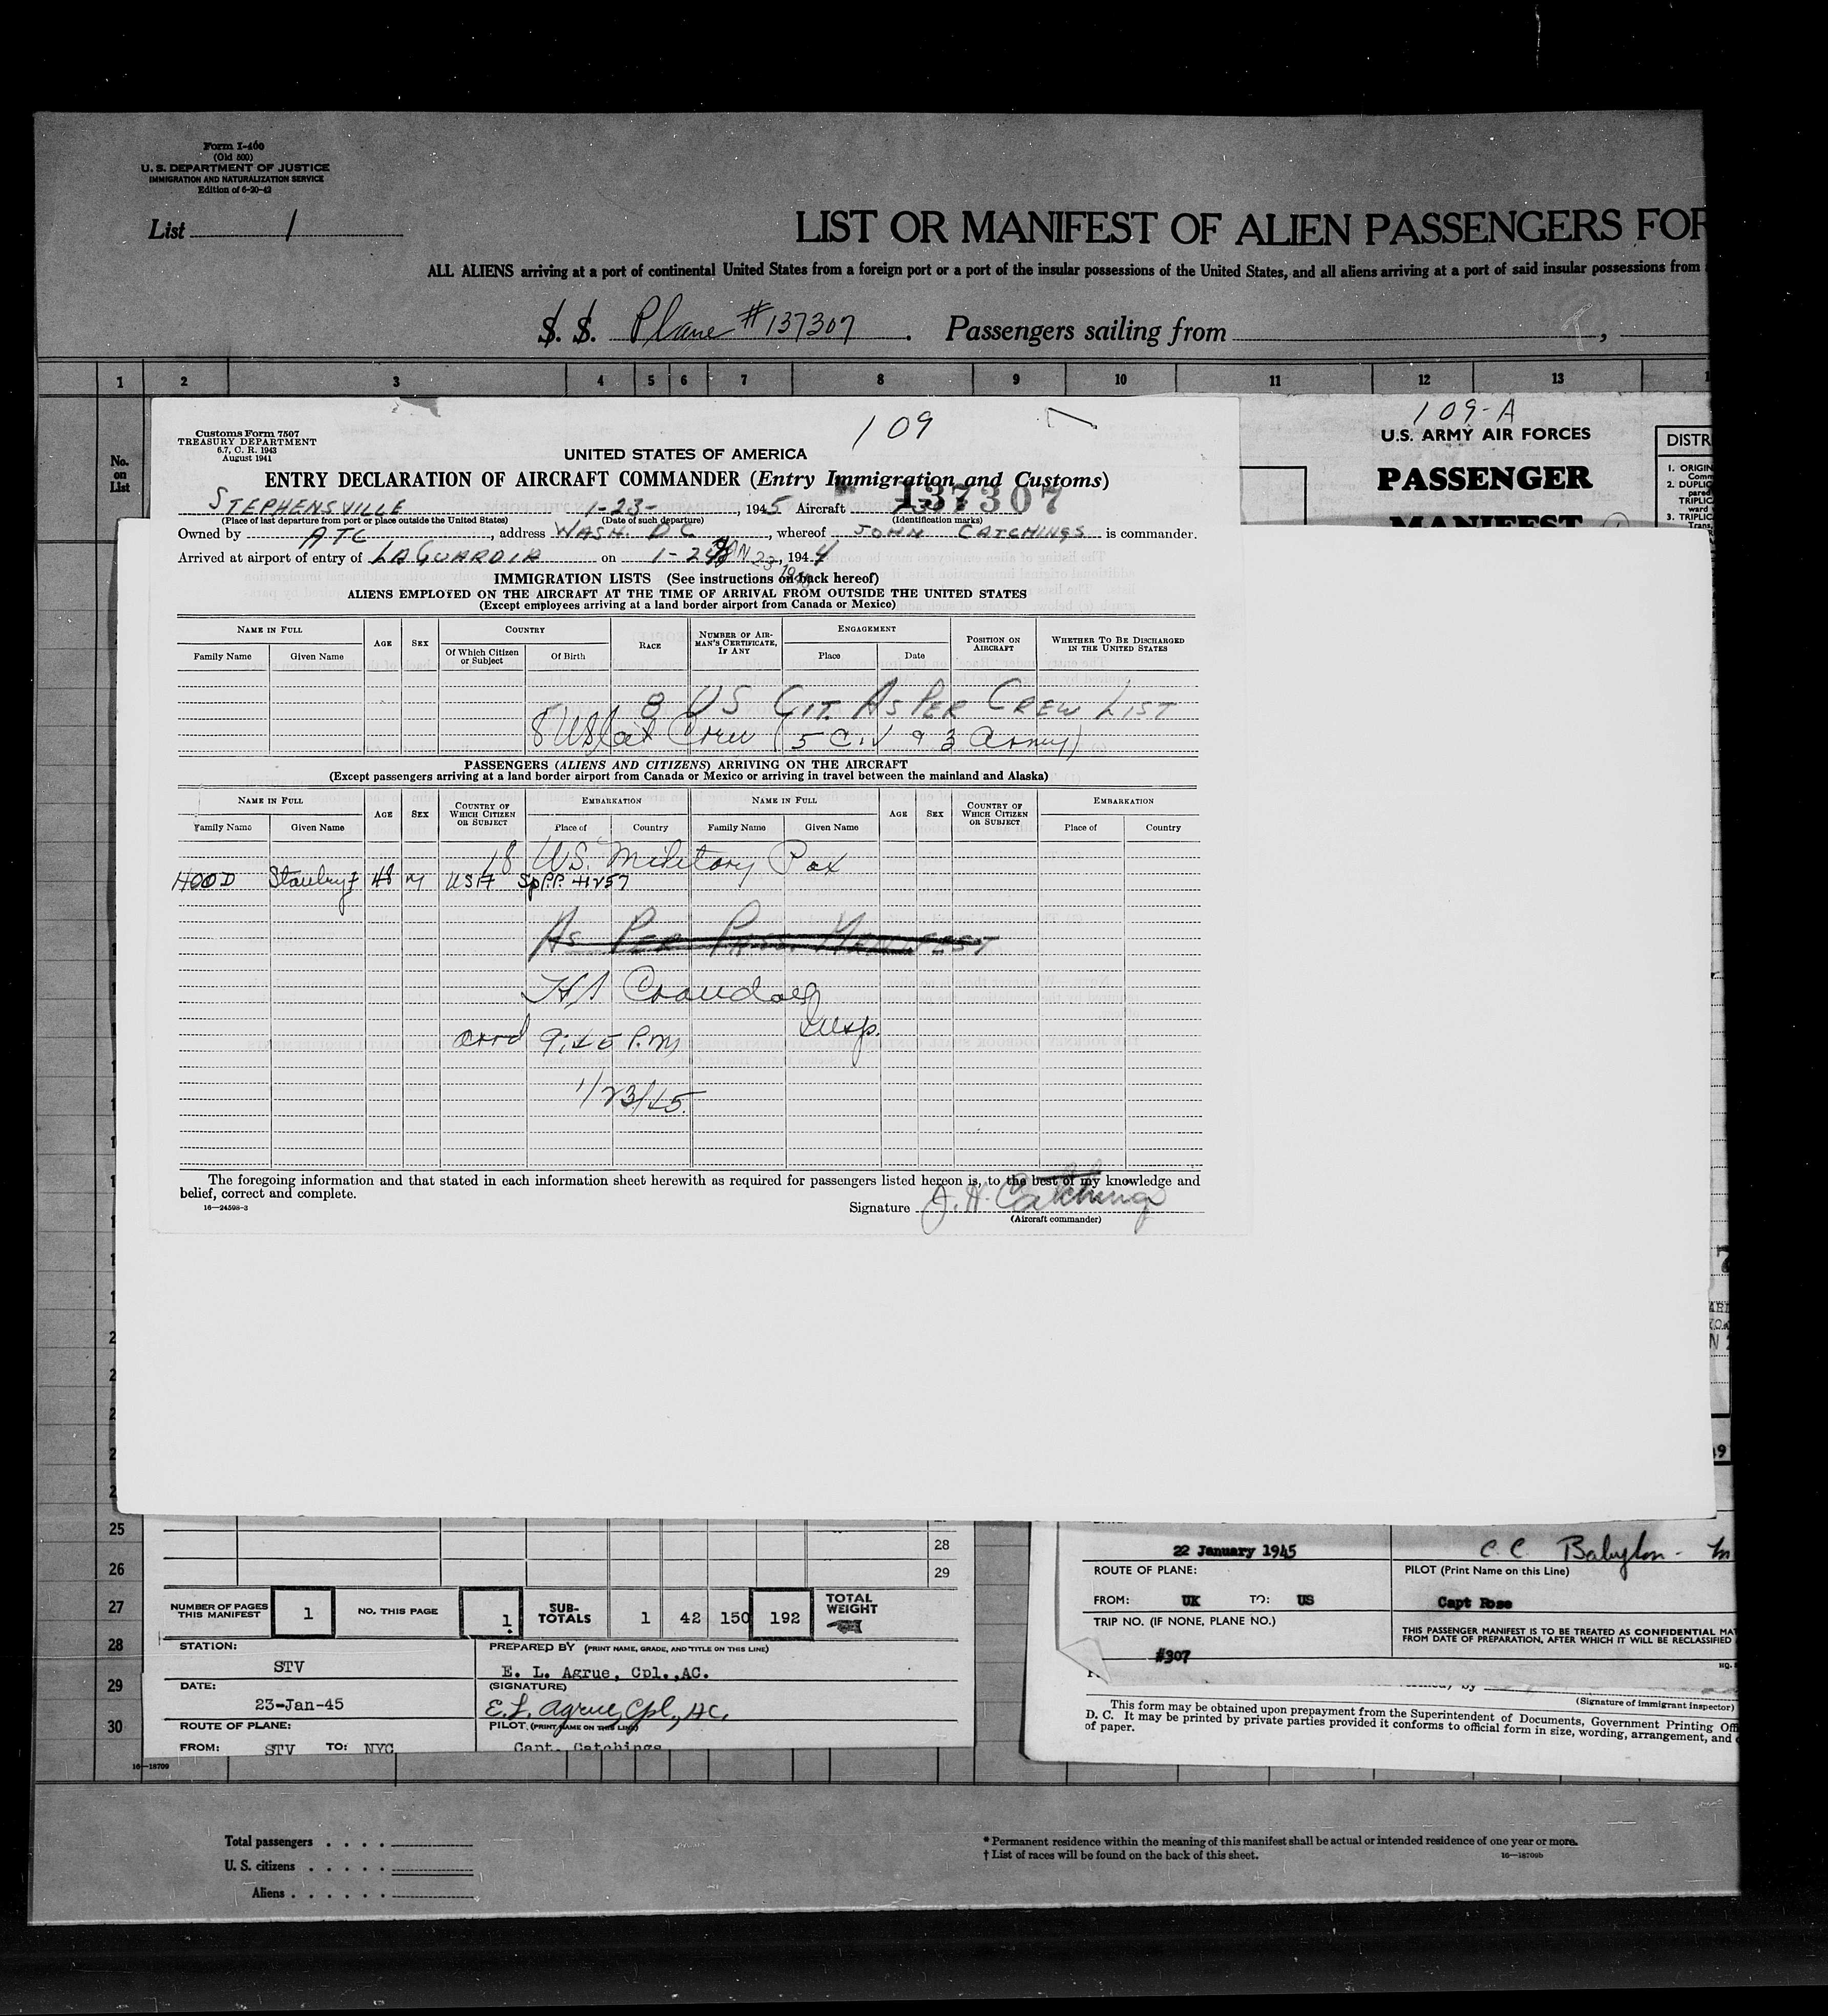 Form I-400
(Old 500)
U. S. DEPARTMENT OF JUSTICE
IMMIGRATION AND NATURALIZATION SERVICE
Edition of 6-20-42
List 1
LIST OR MANIFEST OF ALIEN PASSENGERS FOR
ALL ALIENS arriving at a port of continental United States from a foreign port or a port of the insular possessions of the United States, and all aliens arriving at a port of said insular possessions from
S. S. Plane #137307. Passengers sailing from
1 2 3 4 5 6 7 8 9 10 11 12 13
No. on List
109
Customs Form 7507
TREASURY DEPARTMENT
6.7, C. R. 1943
August 1941
UNITED STATES OF AMERICA
ENTRY DECLARATION OF AIRCRAFT COMMANDER (Entry Immigration and Customs)
STEPHENSVILLE 1-23-, 1945 Aircraft 137307
(Place of last departure from port or place outside the United States) (Date of such departure) (Identification marks)
Owned by ATC, address WASH. DC, whereof JOHN CATCHINGS is commander.
Arrived at airport of entry of LAGUARDIA on 1-24 JAN 23 1945, 1944
IMMIGRATION LISTS (See instructions on back hereof)
ALIENS EMPLOYED ON THE AIRCRAFT AT THE TIME OF ARRIVAL FROM OUTSIDE THE UNITED STATES
(Except employees arriving at a land border airport from Canada or Mexico)
NAME IN FULL AGE SEX COUNTRY RACE NUMBER OF AIRMAN'S CERTIFICATE, IF ANY ENGAGEMENT POSITION ON AIRCRAFT WHETHER TO BE DISCHARGED IN THE UNITED STATES
Family Name Given Name Of Which Citizen or Subject Of Birth Place Date
8 US CIT. AS PER CREW LIST
8 US Cit Crew (5 Civ & 3 Army)
PASSENGERS (ALIENS AND CITIZENS) ARRIVING ON THE AIRCRAFT
(Except passengers arriving at a land border airport from Canada or Mexico or arriving in travel between the mainland and Alaska)
NAME IN FULL AGE SEX COUNTRY OF WHICH CITIZEN OR SUBJECT EMBARKATION NAME IN FULL AGE SEX COUNTRY OF WHICH CITIZEN OR SUBJECT EMBARKATION
Family Name Given Name Place of Country Family Name Given Name Place of Country
18 U.S. Military Pax
HOOD 48 M USA Sp P.P.
AS PER PASS. MANIFEST
Insp.
arrd 9:45 P.M
1/23/45.
The foregoing information and that stated in each information sheet herewith as required for passengers listed hereon is, to the best of my knowledge and
belief, correct and complete.
16—24598-3
Signature J. H. Catchings
(Aircraft commander)
109-A
U.S. ARMY AIR FORCES
PASSENGER
MANIFEST
DISTR
1. ORIGIN
2. DUPLIC
TRIPLIC
3. TRIPLIC
25
26
27
28
29
30
28
29
NUMBER OF PAGES THIS MANIFEST 1 NO. THIS PAGE 1 SUB-TOTALS 1 42 150 192 TOTAL WEIGHT
STATION: STV
PREPARED BY (PRINT NAME, GRADE, AND TITLE ON THIS LINE)
E. L. Agrue, Cpl.,AC.
DATE: 23-Jan-45
(SIGNATURE)
E.L. Agrue, Cpl., AC.
ROUTE OF PLANE:
PILOT (PRINT NAME ON THIS LINE)
FROM: STV TO: NYC
Capt. Catchings
16—18709
22 January 1945
C. C. Babylon
ROUTE OF PLANE:
PILOT (Print Name on this Line)
FROM: UK TO: US
Capt Rose
TRIP NO. (IF NONE, PLANE NO.)
#307
THIS PASSENGER MANIFEST IS TO BE TREATED AS CONFIDENTIAL
FROM DATE OF PREPARATION, AFTER WHICH IT WILL BE RECLASSIFIED
(Signature of Immigrant Inspector)
This form may be obtained upon prepayment from the Superintendent of Documents, Government Printing
D. C. It may be printed by private parties provided it conforms to official form in size, wording, arrangement, and
of paper.
Total passengers
U. S. citizens
Aliens
* Permanent residence within the meaning of this manifest shall be actual or intended residence of one year or more.
† List of races will be found on the back of this sheet.
16—18709b